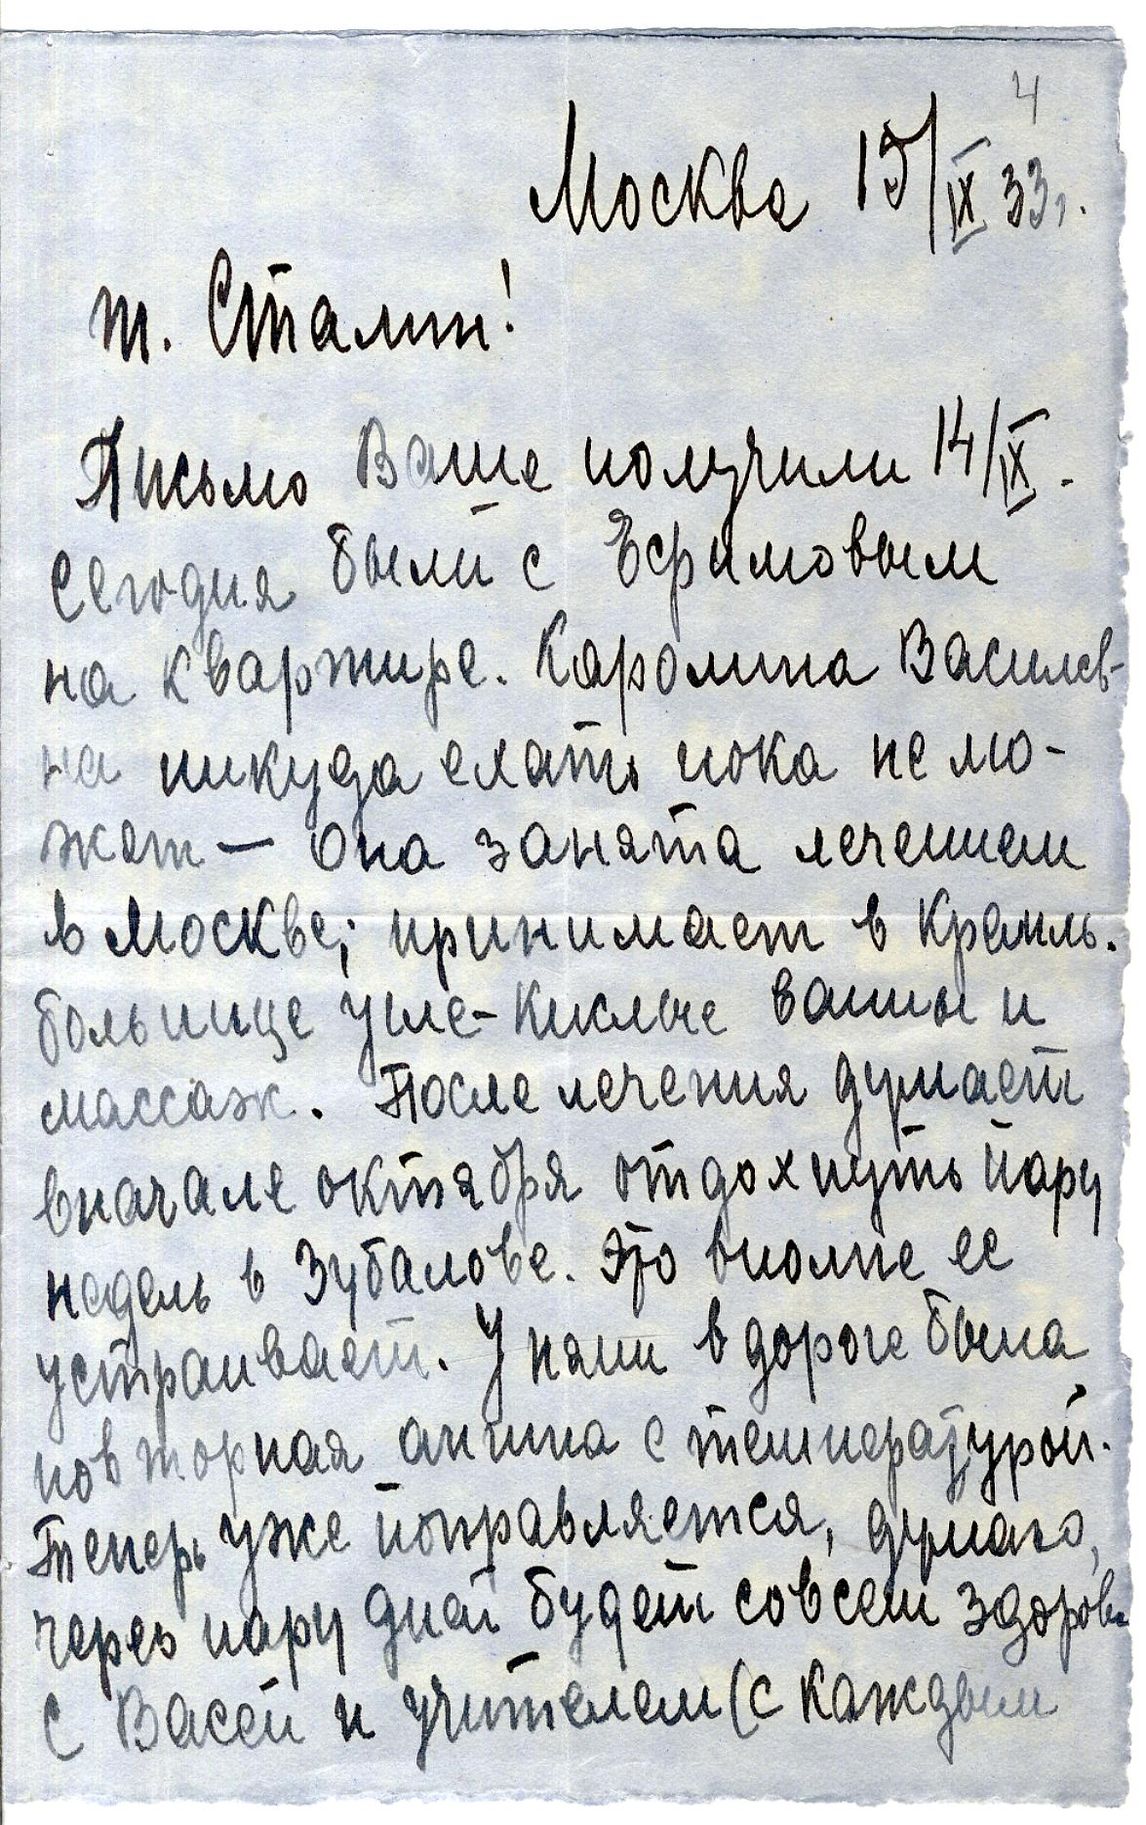 4
Москва 15/IX 33г.
т. Сталин!
Письмо Ваше получили 14/IX.
Сегодня были с Ефимовым
на квартире. Каролина Василев-
на никуда ехать пока не мо-
жет — она занята лечением
в Москве; принимает в Кремль.
больнице угле-кислые ванны и
массаж. После лечения думает
вначале октября отдохнуть пару
недель в Зубалове. Это вполне ее
устраивает. У няни в дороге была
повторная ангина с температурой.
Теперь уже поправляется, думаю,
через пару дней будет совсем здорова
С Васей и учителем (с каждым